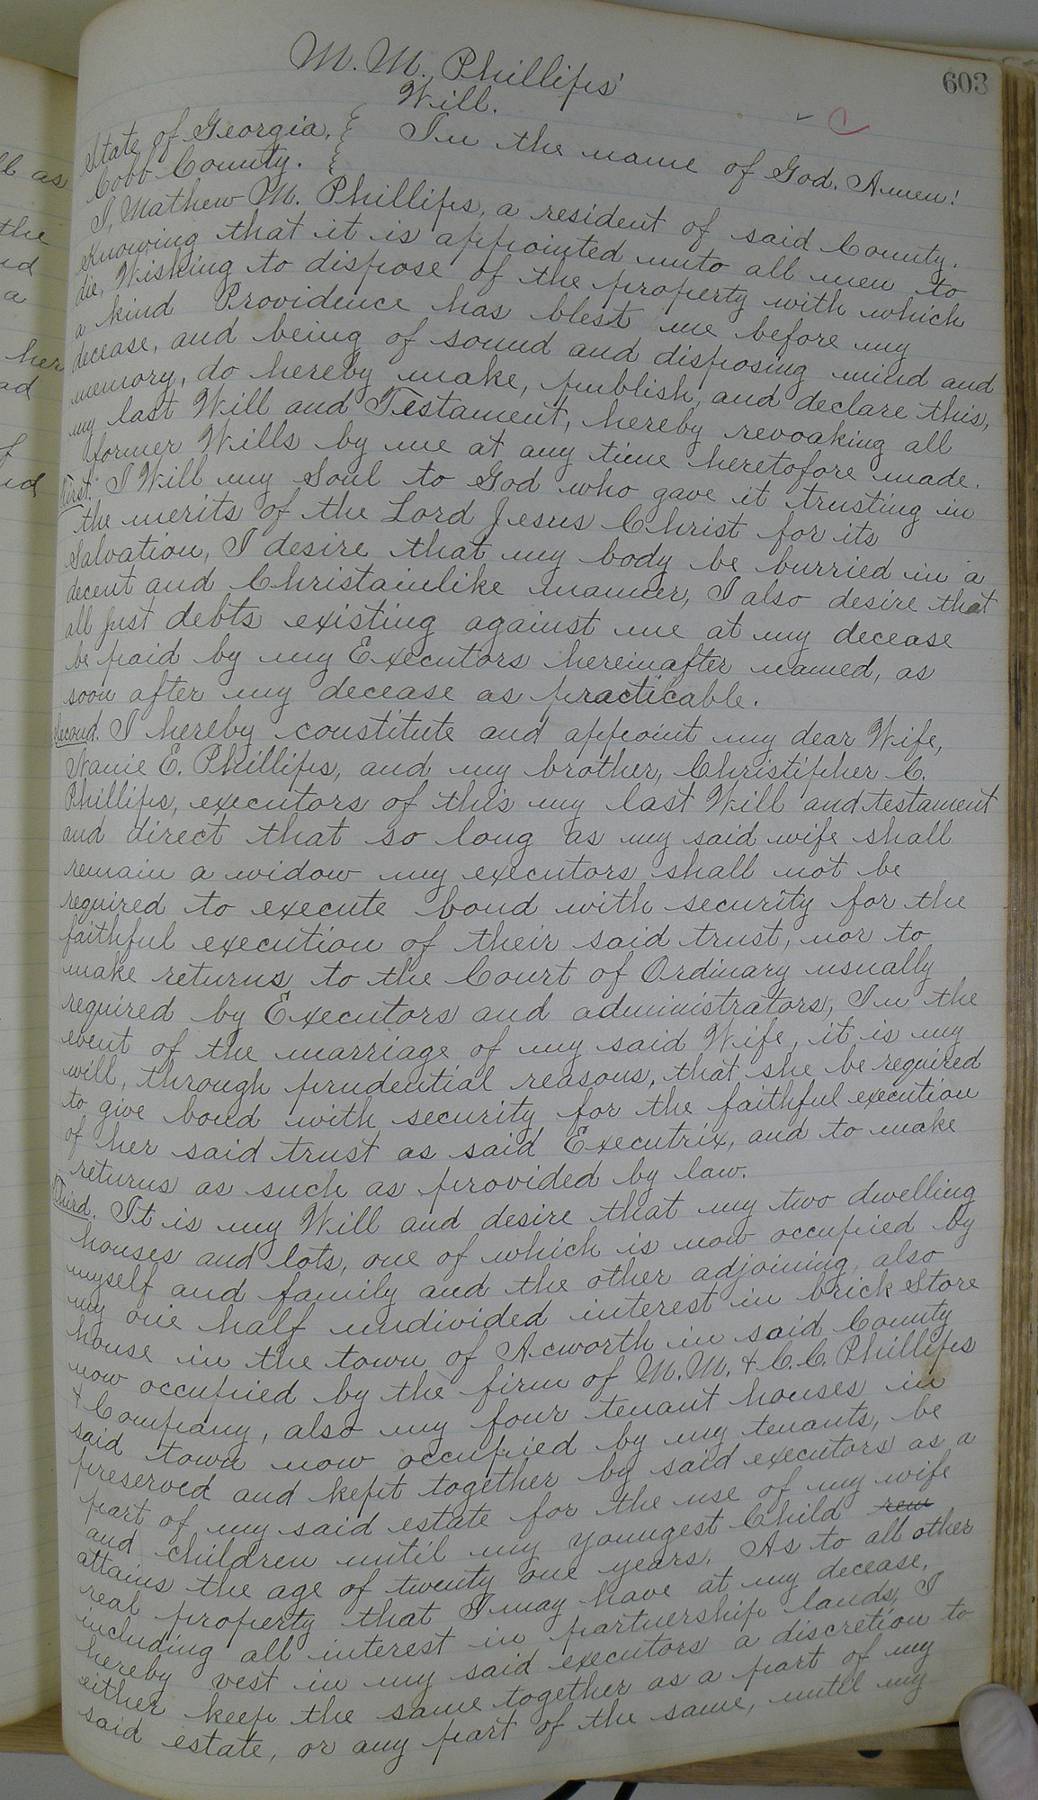 603
M. M. Phillips'
Will.
C
State of Georgia, } In the name of God. Amen!
Cobb County. }
I, Mathew M. Phillips, a resident of said County.
Knowing that it is appointed unto all men to
die, Wishing to dispose of the property with which
a kind Providence has blest me before my
decease, and being of sound and disposing mind and
memory, do hereby make, publish, and declare this,
my last Will and Testament, hereby revoaking all
former Wills by me at any time heretofore made.
First. I Will my Soul to God who gave it trusting in
the merits of the Lord Jesus Christ for its
Salvation, I desire that my body be burried in a
decent and Christainlike manner, I also desire that
all just debts existing against me at my decease
be paid by my Executors hereinafter named, as
soon after my decease as practicable.
Second. I hereby constitute and appoint my dear Wife,
Nanie E. Phillips, and my brother, Christipher C.
Phillips, executors of this my last Will and testament
and direct that so long as my said wife shall
remain a widow my executors shall not be
required to execute bond with security for the
faithful execution of their said trust, nor to
make returns to the Court of Ordinary usually
required by Executors and administrators, In the
event of the marriage of my said Wife, it is my
will, through prudential reasons, that she be required
to give bond with security for the faithful execution
of her said trust as said Executrix, and to make
returns as such as provided by law.
Third. It is my Will and desire that my two dwelling
houses and lots, one of which is now occupied by
myself and family and the other adjoining, also
my one half undivided interest in brick Store
house in the town of Acworth in said County
now occupied by the firm of M. M. & C. C. Phillips
& Company, also my four tenant houses in
said town now occupied by my tenants, be
preserved and kept together by said executors as a
part of my said estate for the use of my wife
and children until my youngest Child rem
attains the age of twenty one years. As to all other
real property that I may have at my decease,
including all interest in partnership lands, I
hereby vest in my said executors a discretion to
either keep the same together as a part of my
said estate, or any part of the same, until my